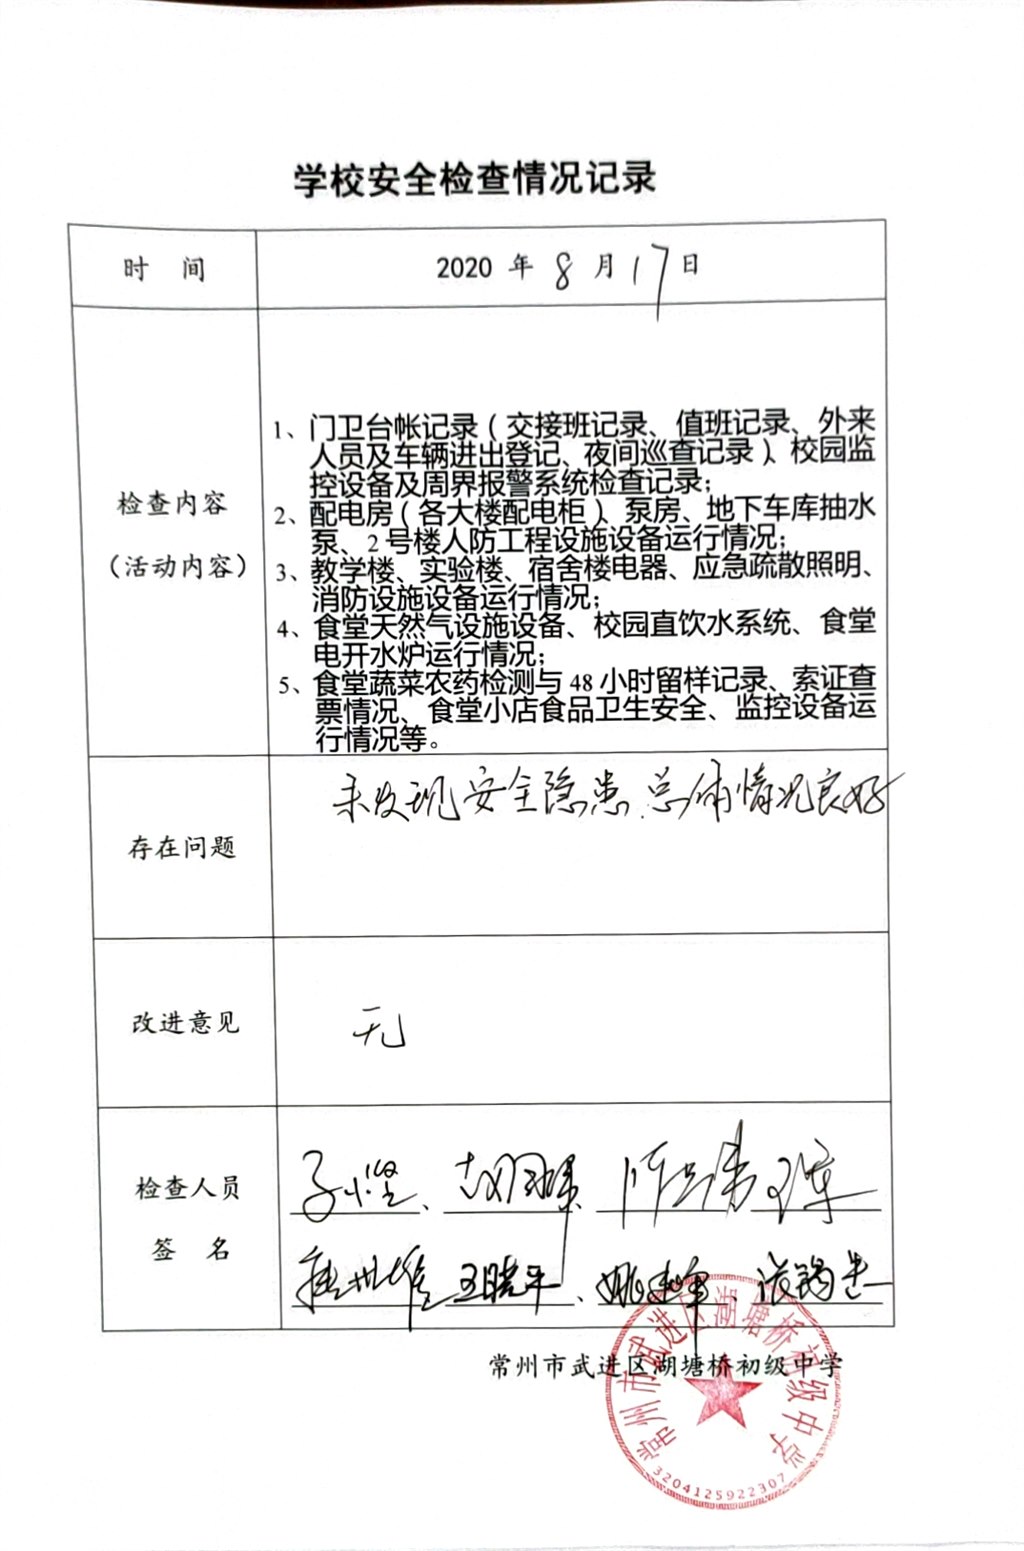 学校安全检查情况记录
时 间
2020 年 8 月 17 日
检查内容
（活动内容）
1、门卫台帐记录（交接班记录、值班记录、外来
人员及车辆进出登记、夜间巡查记录）、校园监
控设备及周界报警系统检查记录；
2、配电房（各大楼配电柜）、泵房、地下车库抽水
泵、2号楼人防工程设施设备运行情况；
3、教学楼、实验楼、宿舍楼电器、应急疏散照明、
消防设施设备运行情况；
4、食堂天然气设施设备、校园直饮水系统、食堂
电开水炉运行情况；
5、食堂蔬菜农药检测与 48 小时留样记录、索证查
票情况、食堂小店食品卫生安全、监控设备运
行情况等。
存在问题
未发现安全隐患.总体情况良好
改进意见
无
检查人员
签 名
王晓平、姚建军、
常州市武进区湖塘桥初级中学
常州市武进区湖塘桥初级中学
3204125922307